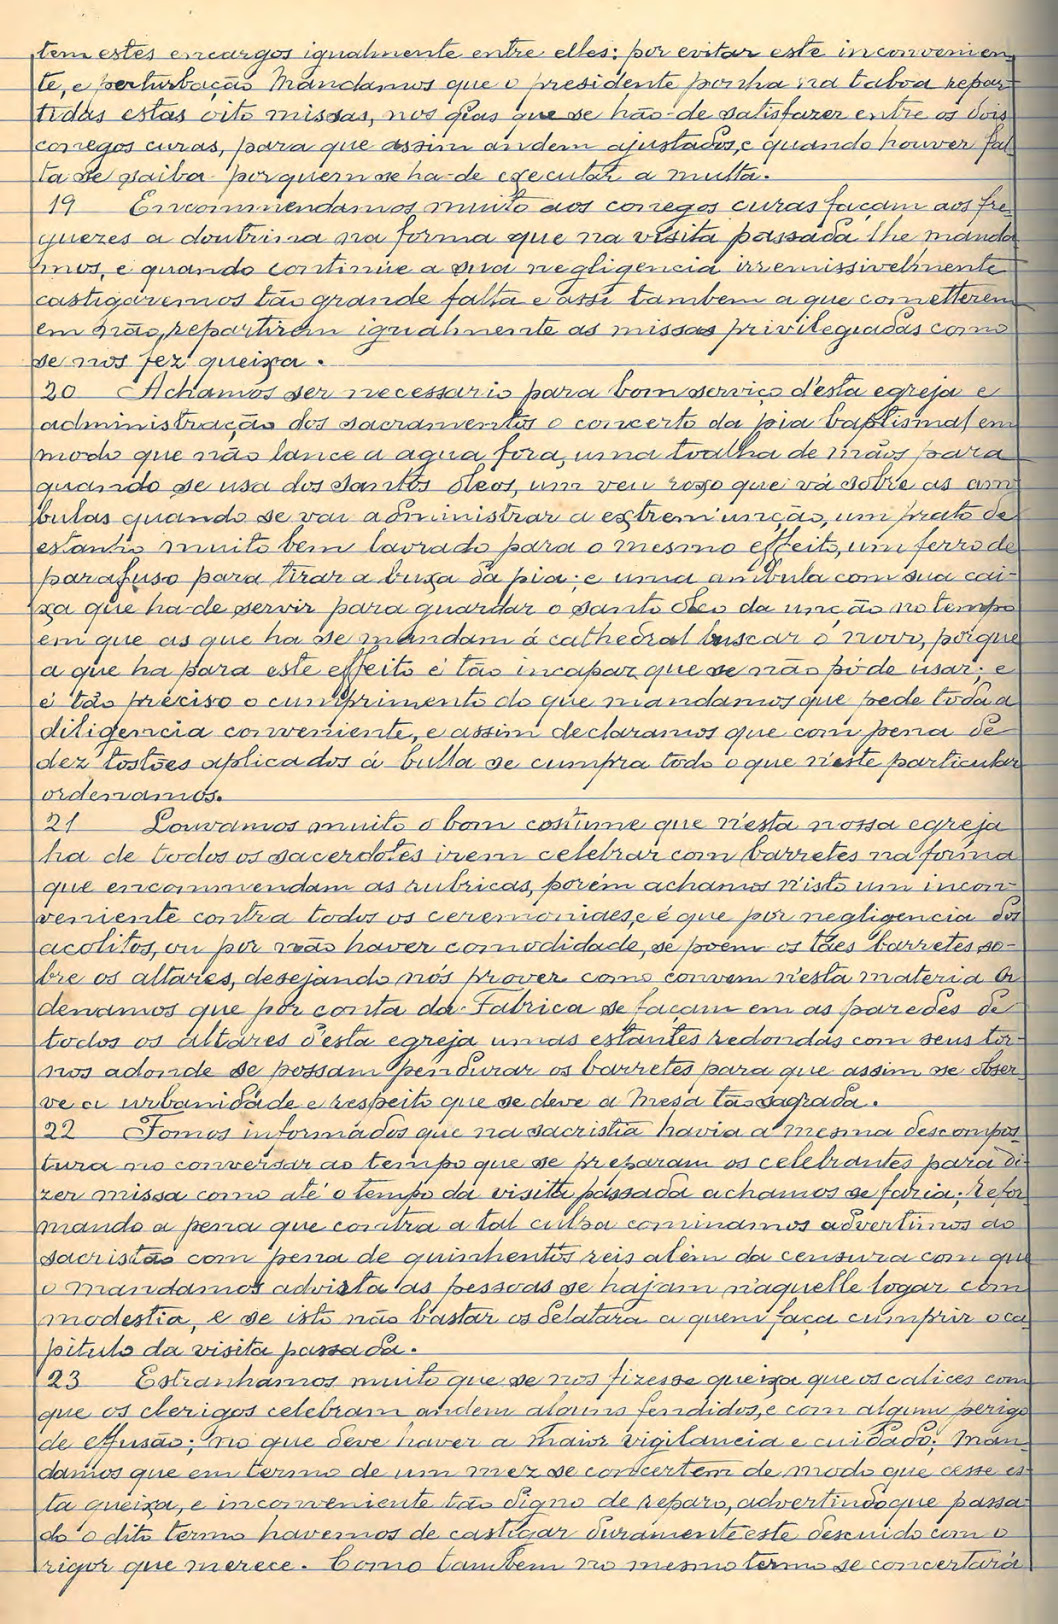 tem estes encargos igualmente entre elles: por evitar este inconvenien-
te, e perturbação Mandamos que o presidente ponha na taboa repar-
tidas estas oito missas, nos dias que se hão-de satisfazer entre os dois
conegos curas, para que assim andem ajustados, e quando houver fal-
ta se saiba por quem se ha-de executar a multa.
19 Encommendamos muito aos conegos curas façam aos fre-
guezes a doutrina na forma que na visita passada lhe manda-
mos, e quando continue a sua negligencia irremissivelmente
castigaremos tão grande falta e assi tambem a que cometterem
em não repartirem igualmente as missas privilegiadas como
se nos fez queixa.
20 Achamos ser necessario para bom serviço d'esta egreja e
administração dos sacramentos o concerto da pia baptismal em
modo que não lance a agua fora, uma toalha de mãos para
quando se usa dos santos oleos, um veu roxo que vá sobre as am-
bulas quando se vai administrar a extrem'unção, um prato de
estanho muito bem lavrado para o mesmo effeito, um ferro de
parafuso para tirar a buxa da pia; e uma ambula com sua cai-
xa que ha-de servir para guardar o santo oleo da unção no tempo
em que as que ha se mandam á cathedral buscar o novo, porque
a que ha para este effeito é tão incapaz que se não póde usar; e
é tão preciso o cumprimento do que mandamos que pede toda a
diligencia conveniente, e assim declaramos que com pena de
dez tostões aplicados á bulla se cumpra todo o que n'este particular
ordenamos.
21 Louvamos muito o bom costume que n'esta nossa egreja
ha de todos os sacerdotes irem celebrar com barretes na forma
que encommendam as rubricas, porém achamos n'isto um incon-
veniente contra todos os ceremoniaes, e é que por negligencia dos
acolitos, ou por não haver comodidade, se poêm os táes barretes so-
bre os altares, desejando nós prover como convem n'esta materia Or-
denamos que por conta da Fabrica se façam em as paredes de
todos os altares d'esta egreja umas estantes redondas com seus tor-
nos adonde se possam pendurar os barretes para que assim se obser-
ve a urbanidade e respeito que se deve a Mesa tão sagrada.
22 Fomos informados que na sacristia havia a mesma descompos-
tura no conversar ao tempo que se preparam os celebrantes para di-
zer missa como até o tempo da visita passada achamos se fazia; Refor-
mando a pena que contra a tal culpa cominamos advertimos ao
sacristão com pena de quinhentos reis além da censura com que
o mandamos advirta as pessoas se hajam n'aquelle logar com
modestia, e se isto não bastar os delatará a quem faça cumprir o ca-
pitulo da visita passada.
23 Estranhamos muito que se nos fizesse queixa que os calices com
que os clerigos celebram andem alguns fendidos, e com algum perigo
de effusão; no que deve haver a maior vigilancia e cuidado; Man-
damos que em termo de um mez se concertem de modo que cesse es-
ta queixa, e inconveniente tão digno de reparo, advertindo que passa-
do o dito termo havemos de castigar duramente este descuido com o
rigor que merece. Como tambem no mesmo termo se concertará